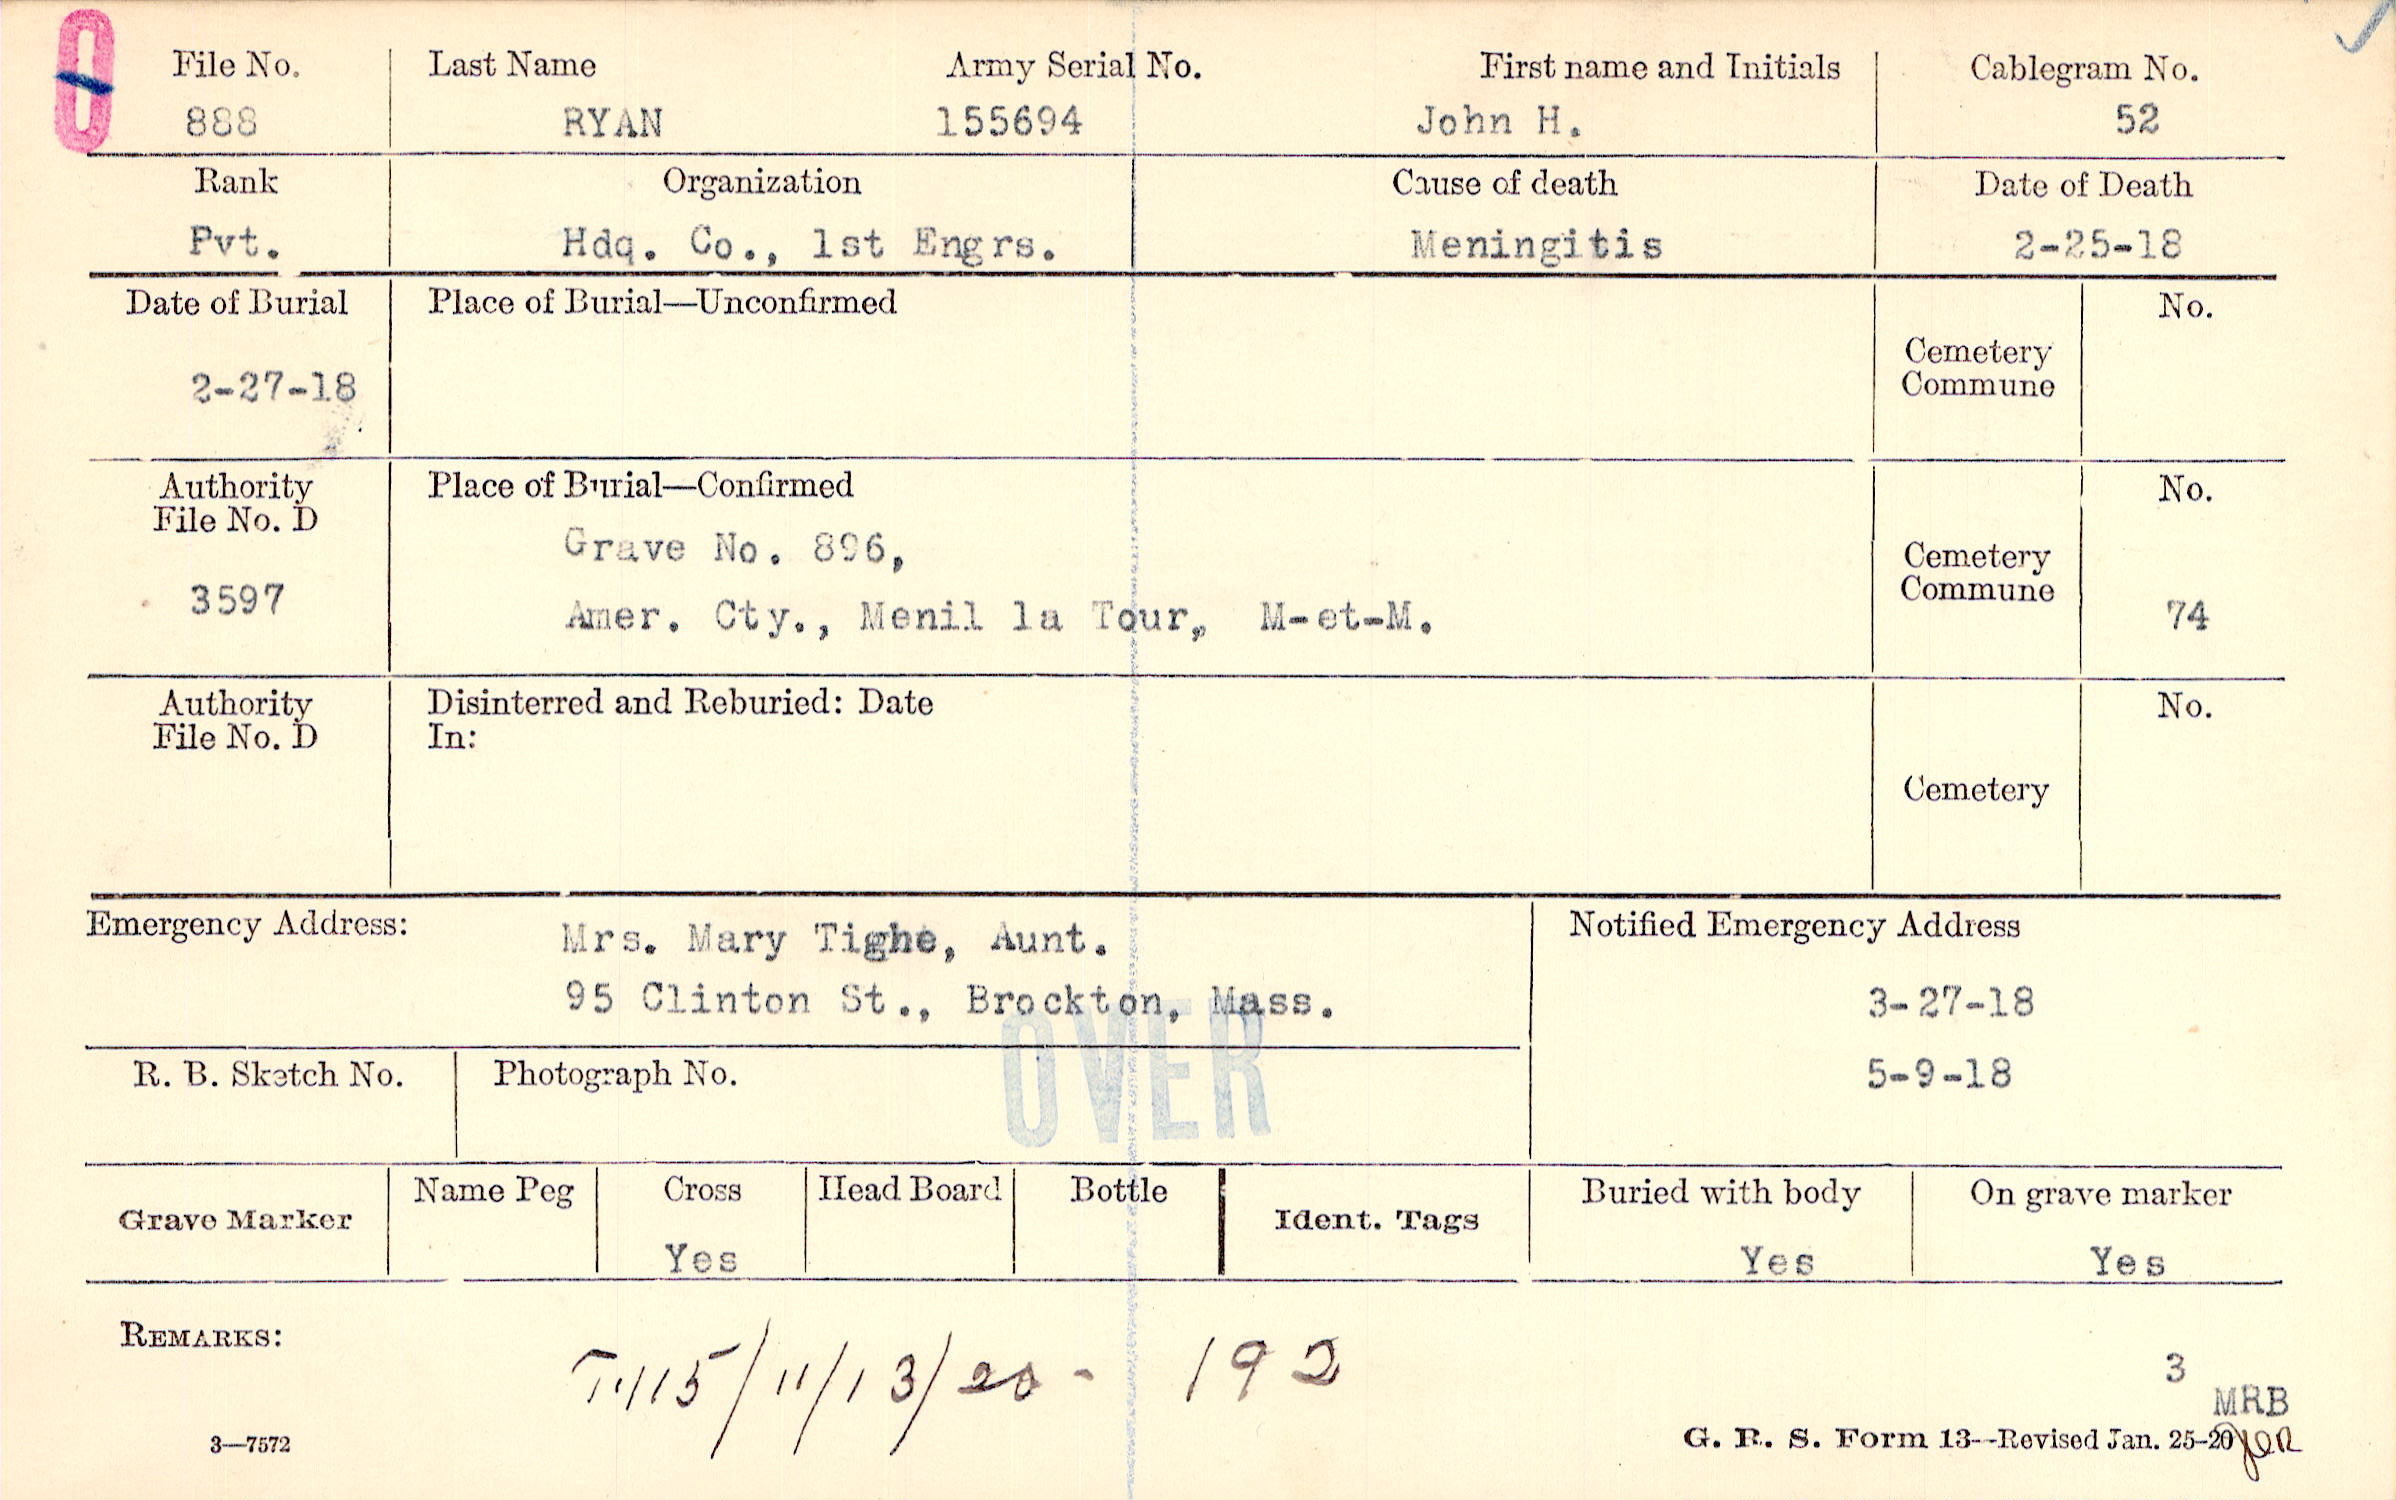 0
File No. Last Name Army Serial No. First name and Initials Cablegram No.
888 RYAN 155694 John H. 52
Rank Organization Cause of death Date of Death
Pvt. Hdq. Co., 1st Engrs. Meningitis 2-25-18
Date of Burial Place of Burial—Unconfirmed No.
Cemetery
Commune
2-27-18
Authority
File No. D
Place of Burial—Confirmed No.
Grave No. 896,
Cemetery
Commune
3597 Amer. Cty., Menil la Tour, M-et-M. 74
Authority
File No. D
Disinterred and Reburied: Date No.
In:
Cemetery
Emergency Address: Mrs. Mary Tighe, Aunt. Notified Emergency Address
95 Clinton St., Brockton, Mass. 3-27-18
OVER
R. B. Sketch No. Photograph No. 5-9-18
Grave Marker Name Peg Cross Head Board Bottle Ident. Tags Buried with body On grave marker
Yes Yes Yes
REMARKS:
/11/13/20- 192
3
MRB
3—7572 G. R. S. Form 13—Revised Jan. 25-20